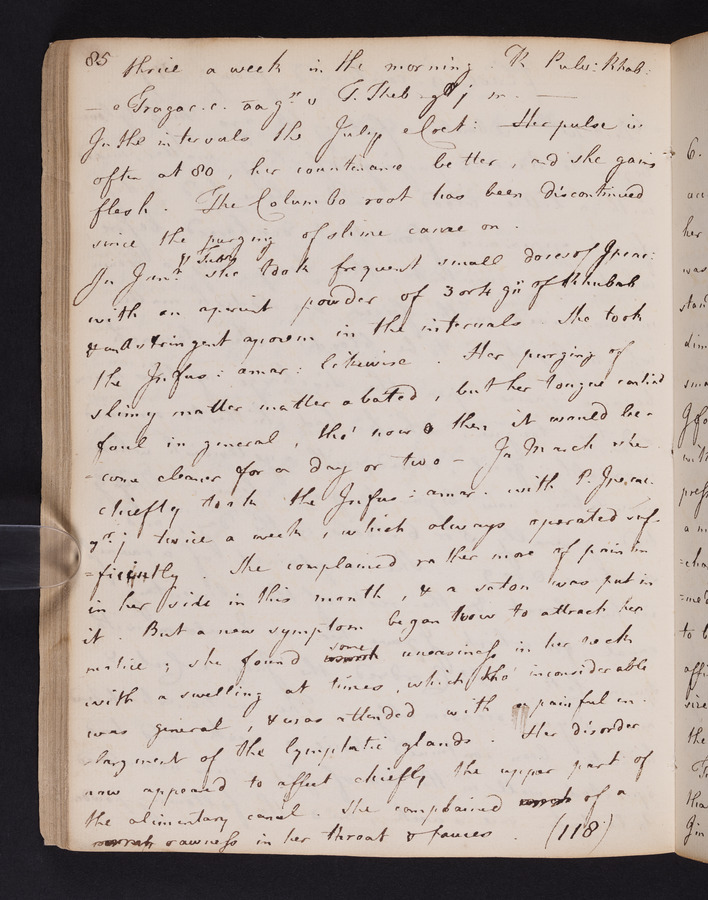 85
thrice a week in the morning. ℞ Pulv: Rhab:
— e Tragac. c. āā gr v T. Theb. g j m. —
In the intervals the Julep e Cret: Her pulse is
often at 80, her countenance better, and she gains
flesh. The Columbo root has been discontinued
since the purging of slime came on.
& Febry
In Jany she took frequent small doses of Ipecac:
with an aperient powder of 3 or 4 g of Rhubarb
& an astringent apozem in the intervals she took
the Infus: amar: likewise. Her purging of
slimy matter matter abated, but her tongue contind
foul in general, tho' now & then it would be-
-come cleaner for a day or two — In March she
chiefly took the Infus: amar. with P. Ipecac.
gr j twice a week, which always operated suf-
=ficiently. She complained rather more of pain in
in her side in this month, & a seton was put in
it. But a new symptom began now to attract her
notice; she found some uneasiness in her neck
with a swelling at times, which tho' inconsiderable
was general, & was attended with a painful en-
-largment of the lymphatic glands. Her disorder
now appeared to affect chiefly the upper part of
the alimentary canal. She complained of a
rawness in her throat & fauces. (118)
6.
her
was